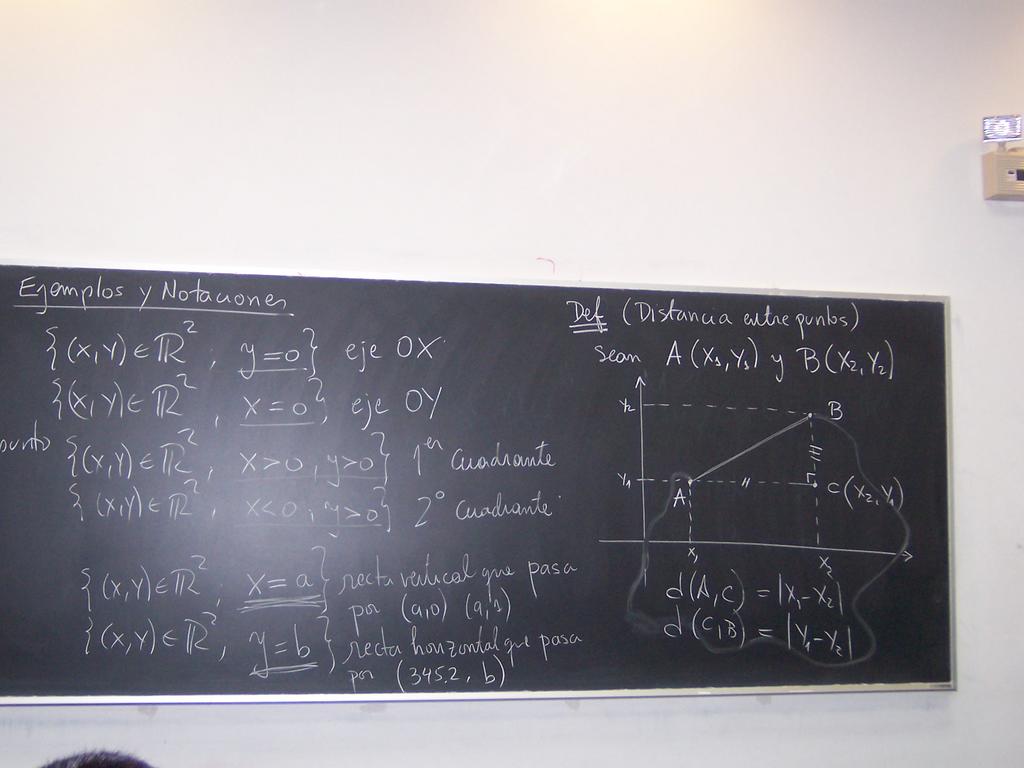 Ejemplos y Notaciones
{(x,y) ∈ ℝ² ; y=0} eje OX
{(x,y) ∈ ℝ² , x=0} eje OY
{(x,y) ∈ ℝ² , x>0 , y>0} 1er cuadrante
{(x,y) ∈ ℝ² , x<0 ; y>0} 2º cuadrante
{(x,y) ∈ ℝ² , x=a} recta vertical que pasa
por (a,0) (a,1)
{(x,y) ∈ ℝ² , y=b} recta horizontal que pasa
por (345.2, b)
Def (Distancia entre puntos)
Sean A(x₁,y₁) y B(x₂,y₂)
y₂ B
y₁ A C(x₂,y₁)
x₁ x₂
d(A,C) = |x₁-x₂|
d(C,B) = |y₁-y₂|